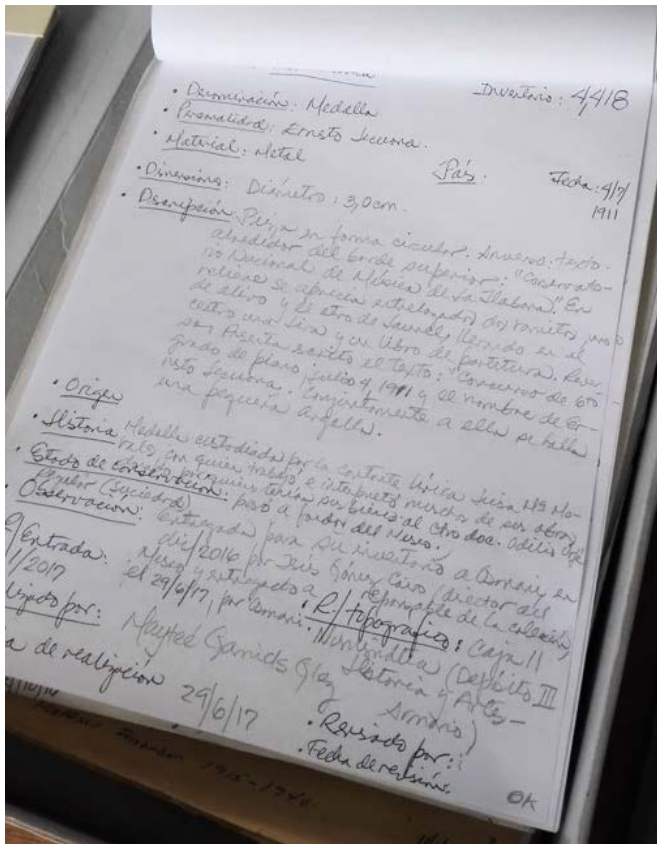 Inventario: 4,418
• Denominación: Medalla
• Personalidad: Ernesto Lecuona.
• Material: Metal
País. Fecha: 4/7/
1911
• Dimensiones: Diámetro: 3,0cm.
• Descripción Pieza en forma circular. Anverso: texto
alrededor del borde superior: "Conservato-
rio Nacional de Música de La Habana." En
relieve se aprecia entrelazados dos ramitos, uno
de olivo y el otro de laurel, llevando en el
centro una lira y un libro de partitura. Rever-
so: Presenta escrito el texto: "Concurso de 6to
grado de piano, julio 4 1911 y el nombre de Er-
nesto Lecuona. Conjuntamente a ella se halla
una pequeña argolla.
• Origen
• Historia Medalla custodiada por la cantante lírica Luisa Mª Mo-
rales, con quien trabajó e interpretó muchas de sus obras,
pasó a fondos del Museo.
• Estado de conservación:
Regular (suciedad)
• Observación: Entregada para su inventario a Osmani en
dic/2016 por Jesús Gómez Cairo (director del
Museo y entregado a responsable de la colección,
el 29/6/17, por Osmani.
Entrada:
1/2017
• R./topográfico: Caja 11
Numismática (Depósito III
Historia y Artes-
Armario)
Mayteé Glez
a de realización 29/6/17
• Revisado por:
• Fecha de revisión.
OK
1915-1940